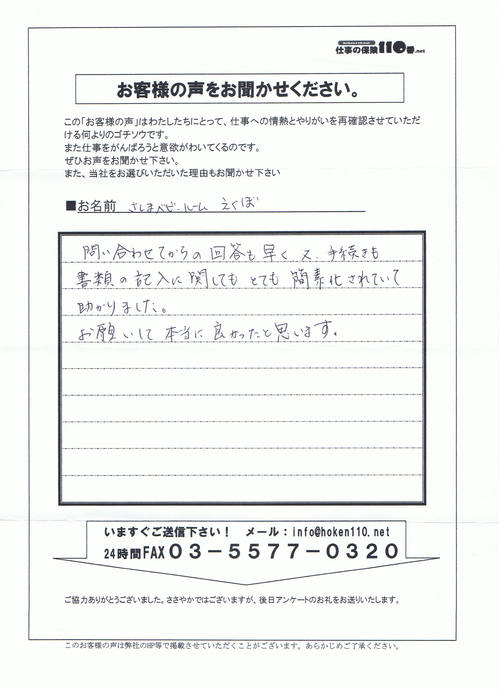 仕事の保険110番.net
お客様の声をお聞かせください。
この「お客様の声」はわたしたちにとって、仕事への情熱とやりがいを再確認させていただ
ける何よりのゴチソウです。
また仕事をがんばろうと意欲がわいてくるのです。
ぜひお声をお聞かせ下さい。
また、当社をお選びいただいた理由もお聞かせ下さい
■お名前 さしまベビールーム えくぼ
問い合わせてからの回答も早く 又、手続きも
書類の記入に関しても とても 簡素化されていて
助かりました。
お願いして 本当に良かったと思います。
いますぐご送信下さい！ メール：info@hoken110.net
24時間FAX０３－５５７７－０３２０
ご協力ありがとうございました。ささやかではございますが、後日アンケートのお礼をお送りいたします。
このお客様の声は弊社のHP等で掲載させていただくことがございます。あらかじめご了承ください。